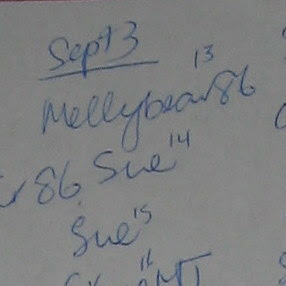 Sept 3
Mellybear86 13
86. Sue 14
Sue 15